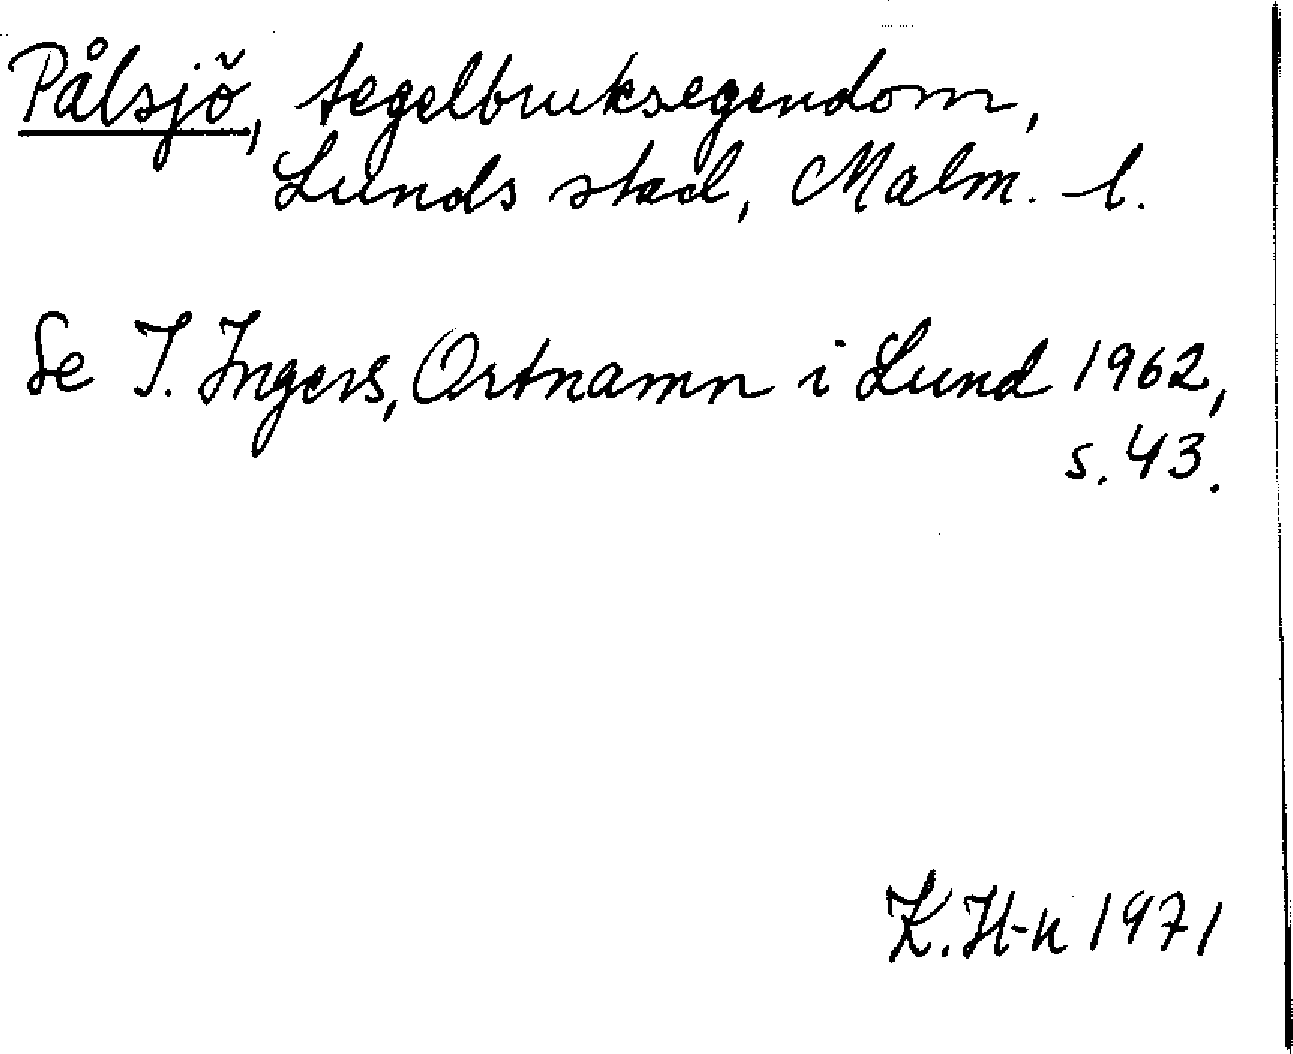 Pålsjö, tegelbruksegendom,
Lunds stad, Malm. l.
Se I. Ingers, Ortnamn i Lund 1962,
s. 43.
K. H-n 1971